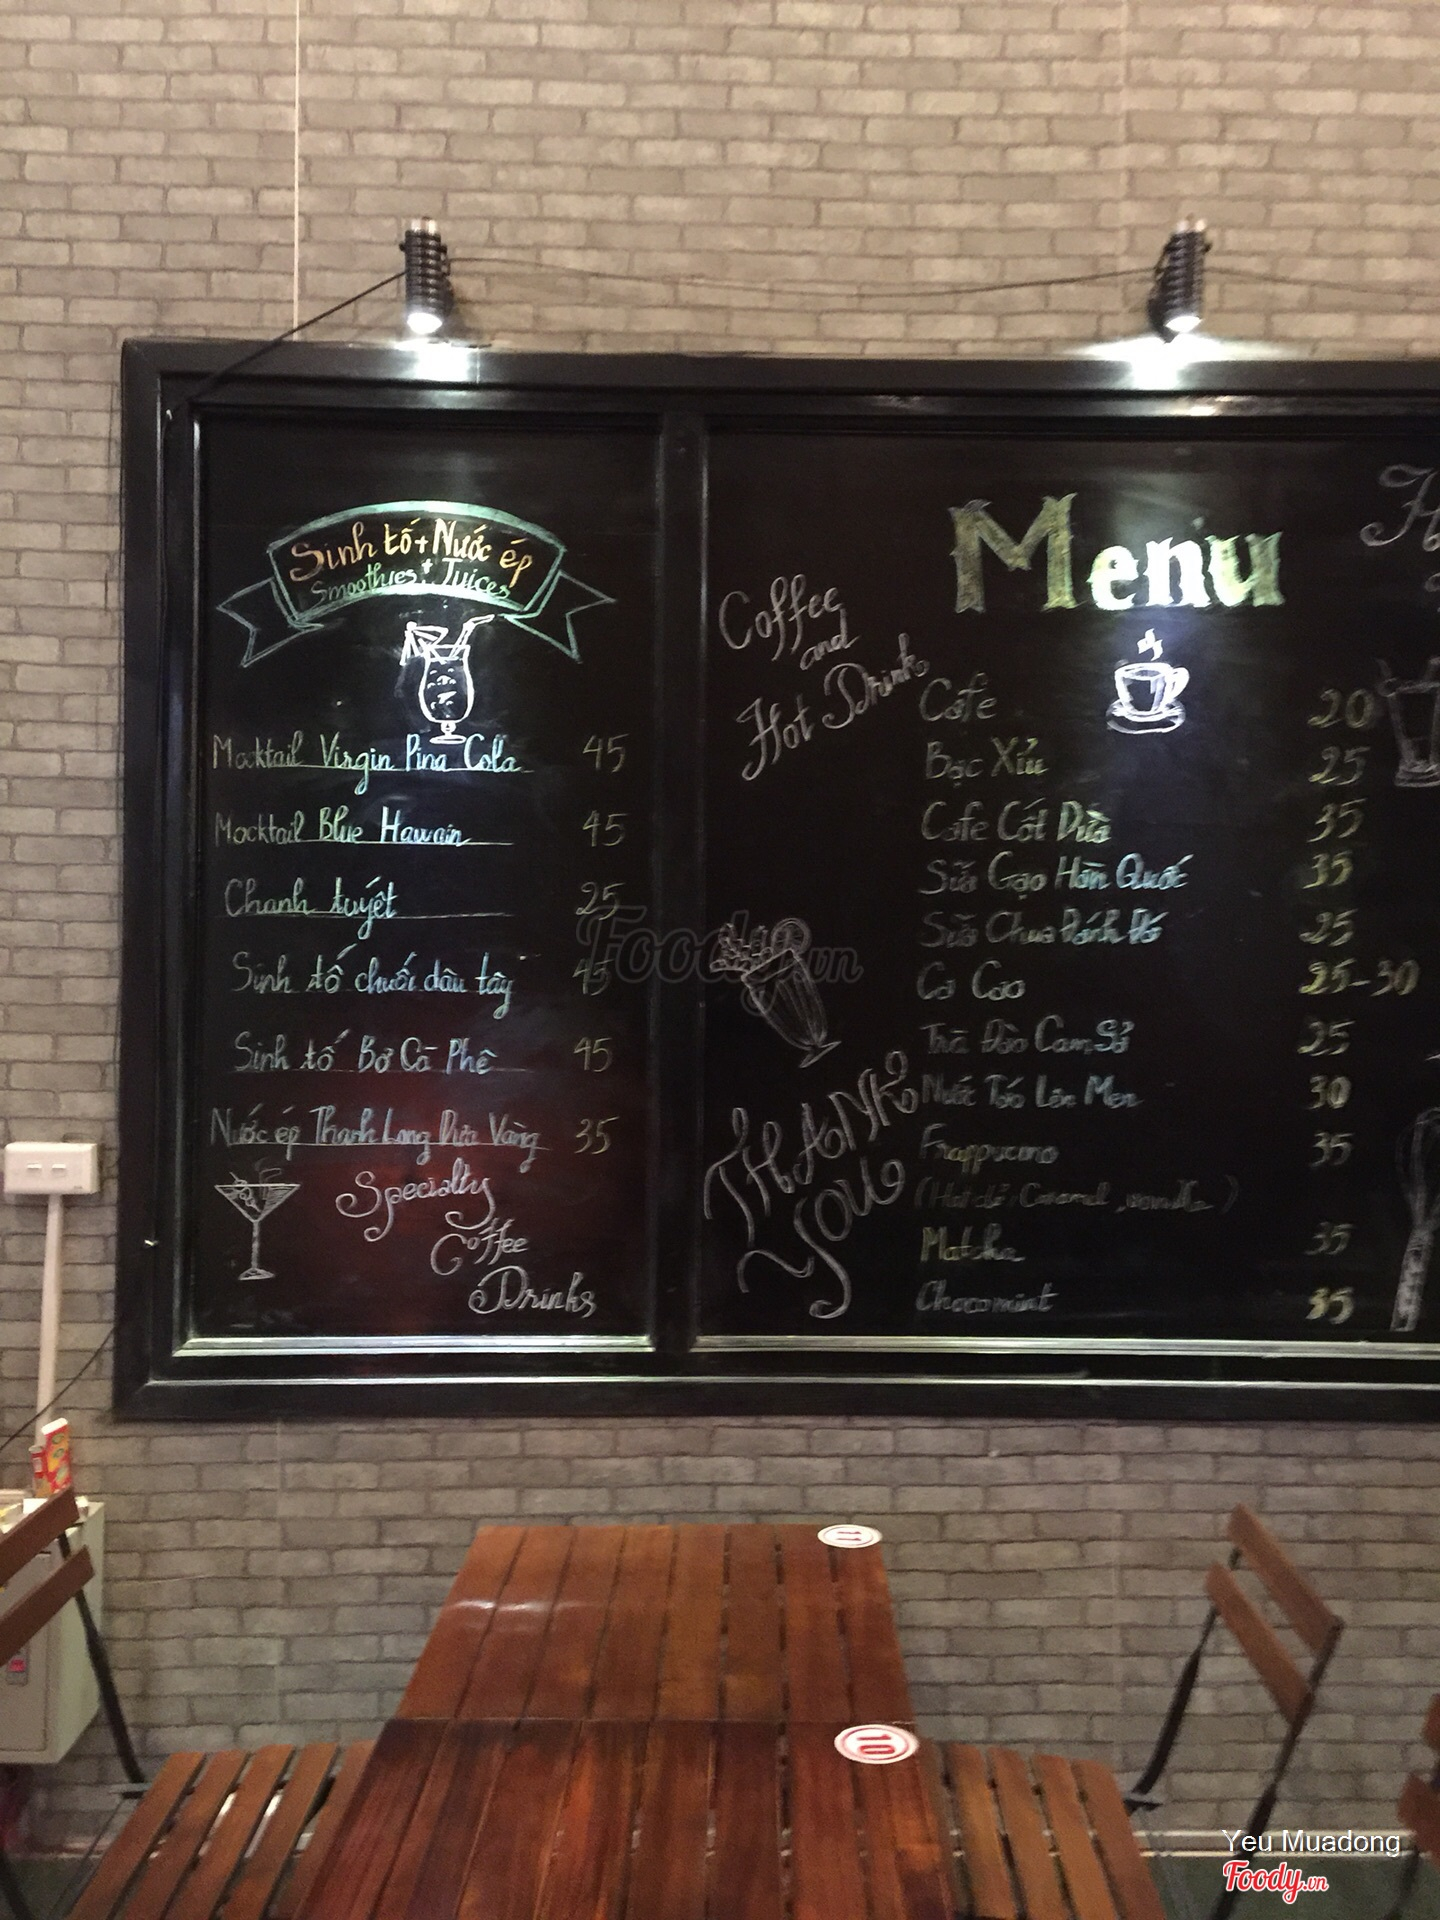 Sinh tố + Nước ép
Smoothies + Juices
Mocktail Virgin Pina Cola 45
Mocktail Blue Hawain 45
Chanh tuyết 25
Sinh tố chuối dâu tây 45
Sinh tố Bơ Cà Phê 45
Nước ép Thanh Long Dứa Vàng 35
Specialty
Coffee
Drinks
Menu
Coffee
and
Hot Drink
Cafe 20
Bạc Xỉu 25
Cafe Cốt Dừa 35
Sữa Gạo Hàn Quốc 35
Sữa Chua Đánh Đá 25
Ca Cao 25-30
Trà Đào Cam Sả 25
Nước Táo Lên Men 30
Frappucino 35
Caramel, vanilla)
Matcha 35
Chocomint 35
THANK
YOU
Foody.vn
11
10
Yeu Muadong
Foody.vn